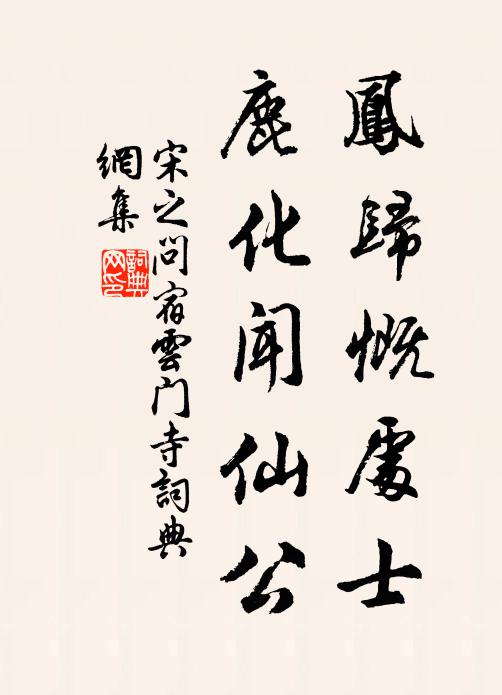 鳳歸慨處士
鹿化聞仙公
宋之问宿雲门寺詞典
網集
詞典
网印